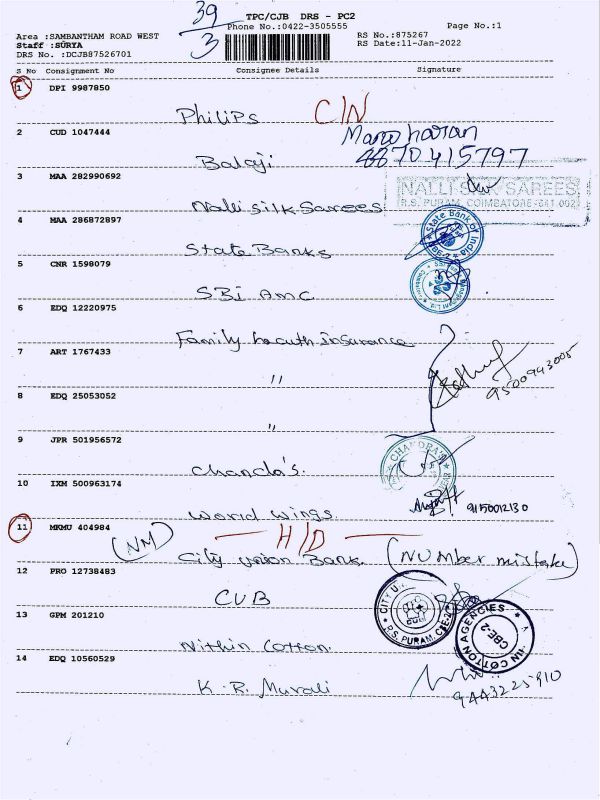 39
3
TPC/CJB DRS - PC2
Phone No.:0422-3505555
Page No.:1
Area :SAMBANTHAM ROAD WEST
Staff :SURYA
DRS No. :DCJB87526701
RS No.:875267
RS Date:11-Jan-2022
S No Consignment No Consignee Details Signature
1 DPI 9987850
Philips C/N
2 CUD 1047444 Manoharan
Balaji 8870415797
3 MAA 282990692
NALLI SILK SAREES
R.S. PURAM, COIMBATORE-641 002
Nalli silk Sarees
4 MAA 286872897
State Bank of India
State Banks
5 CNR 1598079
SBI AMC
6 EDQ 12220975
Family health insurance
7 ART 1767433
"
9500943005
8 EDQ 25053052
"
9 JPR 501956572
CHANDRA'S
Chanda's.
10 IXM 500963174
9150012130
World Wings
11 MKMU 404984
H/D
(NM) City Union Bank (NUmber mistake)
12 PRO 12738483
CUB
CITY U
R.S. PURAM, CBE-2
13 GPM 201210
IN COTTON AGENCIES
CBE-2
Nithin Cotton
14 EDQ 10560529
K.R. Murali
9443225910